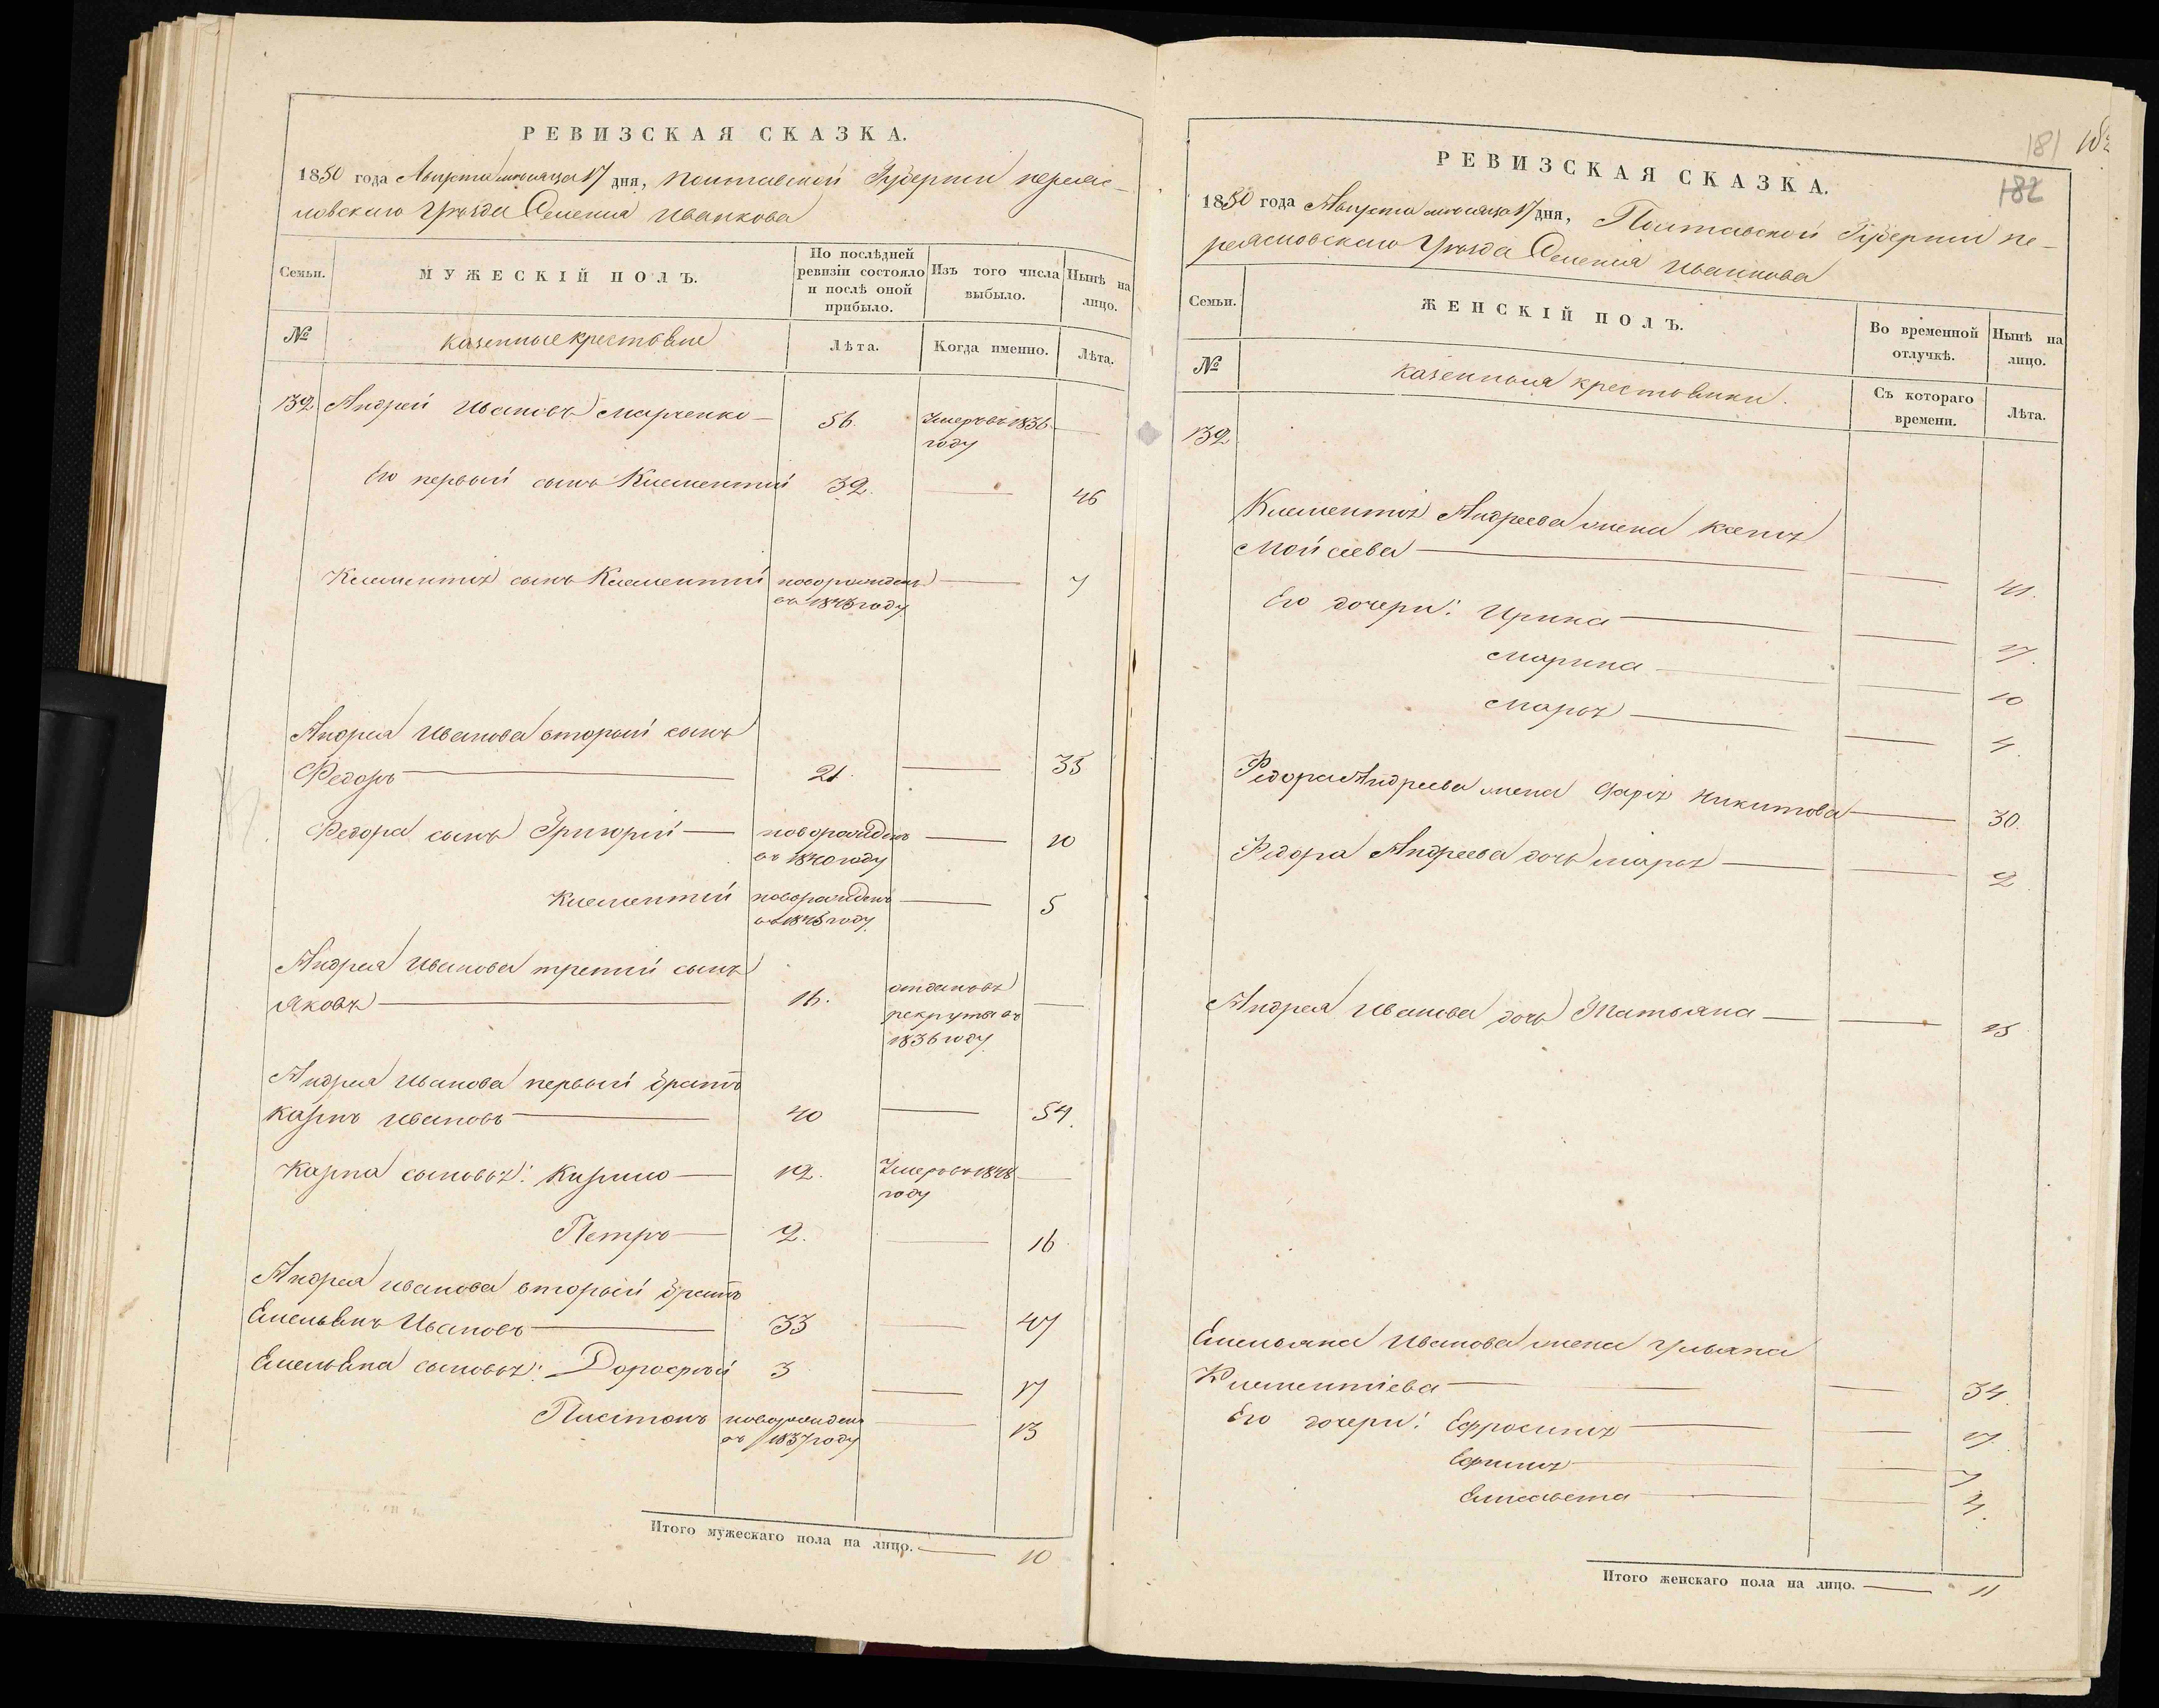 РЕВИЗСКАЯ СКАЗКА.
1850 года Августа месяца 17 дня, Полтавской Губернии переяс-
ловскаго Уезда Селения Иванкова
Семьи.
МУЖЕСКІЙ ПОЛЪ.
По послѣдней ревизіи состояло и послѣ оной прибыло.
Изъ того числа выбыло.
Нынѣ на лицо.
№
казенные крестьяне
Лѣта.
Когда именно.
Лѣта.
132 Андрей Ивановъ Марченко — 56. Умеръ въ 1836 году —
Его первый сынъ Климентій 32. — 46
Климентія сынъ Климентій новорожденъ въ 1843 году — 7
Андрея Иванова второй сынъ
Федоръ — 21. — 35
Федора сынъ Григорій — новорожденъ въ 1840 году — 10
Климентій новорожденъ въ 1845 году — 5
Андрея Иванова третій сынъ
Яковъ — 16. отданъ въ рекруты въ 1836 году —
Андрея Иванова первый братъ
Карпъ Ивановъ — 40 — 54.
Карпа сыновья: Кирило — 12. Умеръ въ 1848 году —
Петръ — 2. — 16
Андрея Иванова второй братъ
Емельянъ Ивановъ — 33 — 47
Емельяна сыновья: Дорофей 3 — 17
Платонъ новорожденъ въ 1837 году — 13
Итого мужескаго пола на лицо. — 10
181
182
РЕВИЗСКАЯ СКАЗКА.
1850 года Августа месяца 17 дня, Полтавской Губернии пе-
реясловскаго Уезда Селения Иванкова
Семьи.
ЖЕНСКІЙ ПОЛЪ.
Во временной отлучкѣ.
Нынѣ на лицо.
№
казенныя крестьянки.
Съ котораго времени.
Лѣта.
132
Климентія Андреева жена Ксенія
Мойсеева — — 41.
Его дочери: Ирина — — 17.
Марина — — 10
Марья — — 4.
Федора Андреева жена Дарья Никитова — 30.
Федора Андреева дочь Марья — — 2
Андрея Иванова дочь Татьяна — — 15
Емельяна Иванова жена Ульяна
Климентіева — — 34.
Его дочери: Ефросинія — — 17.
Ефимия — — 7
Елисавета — — 4.
Итого женскаго пола на лицо. — 11